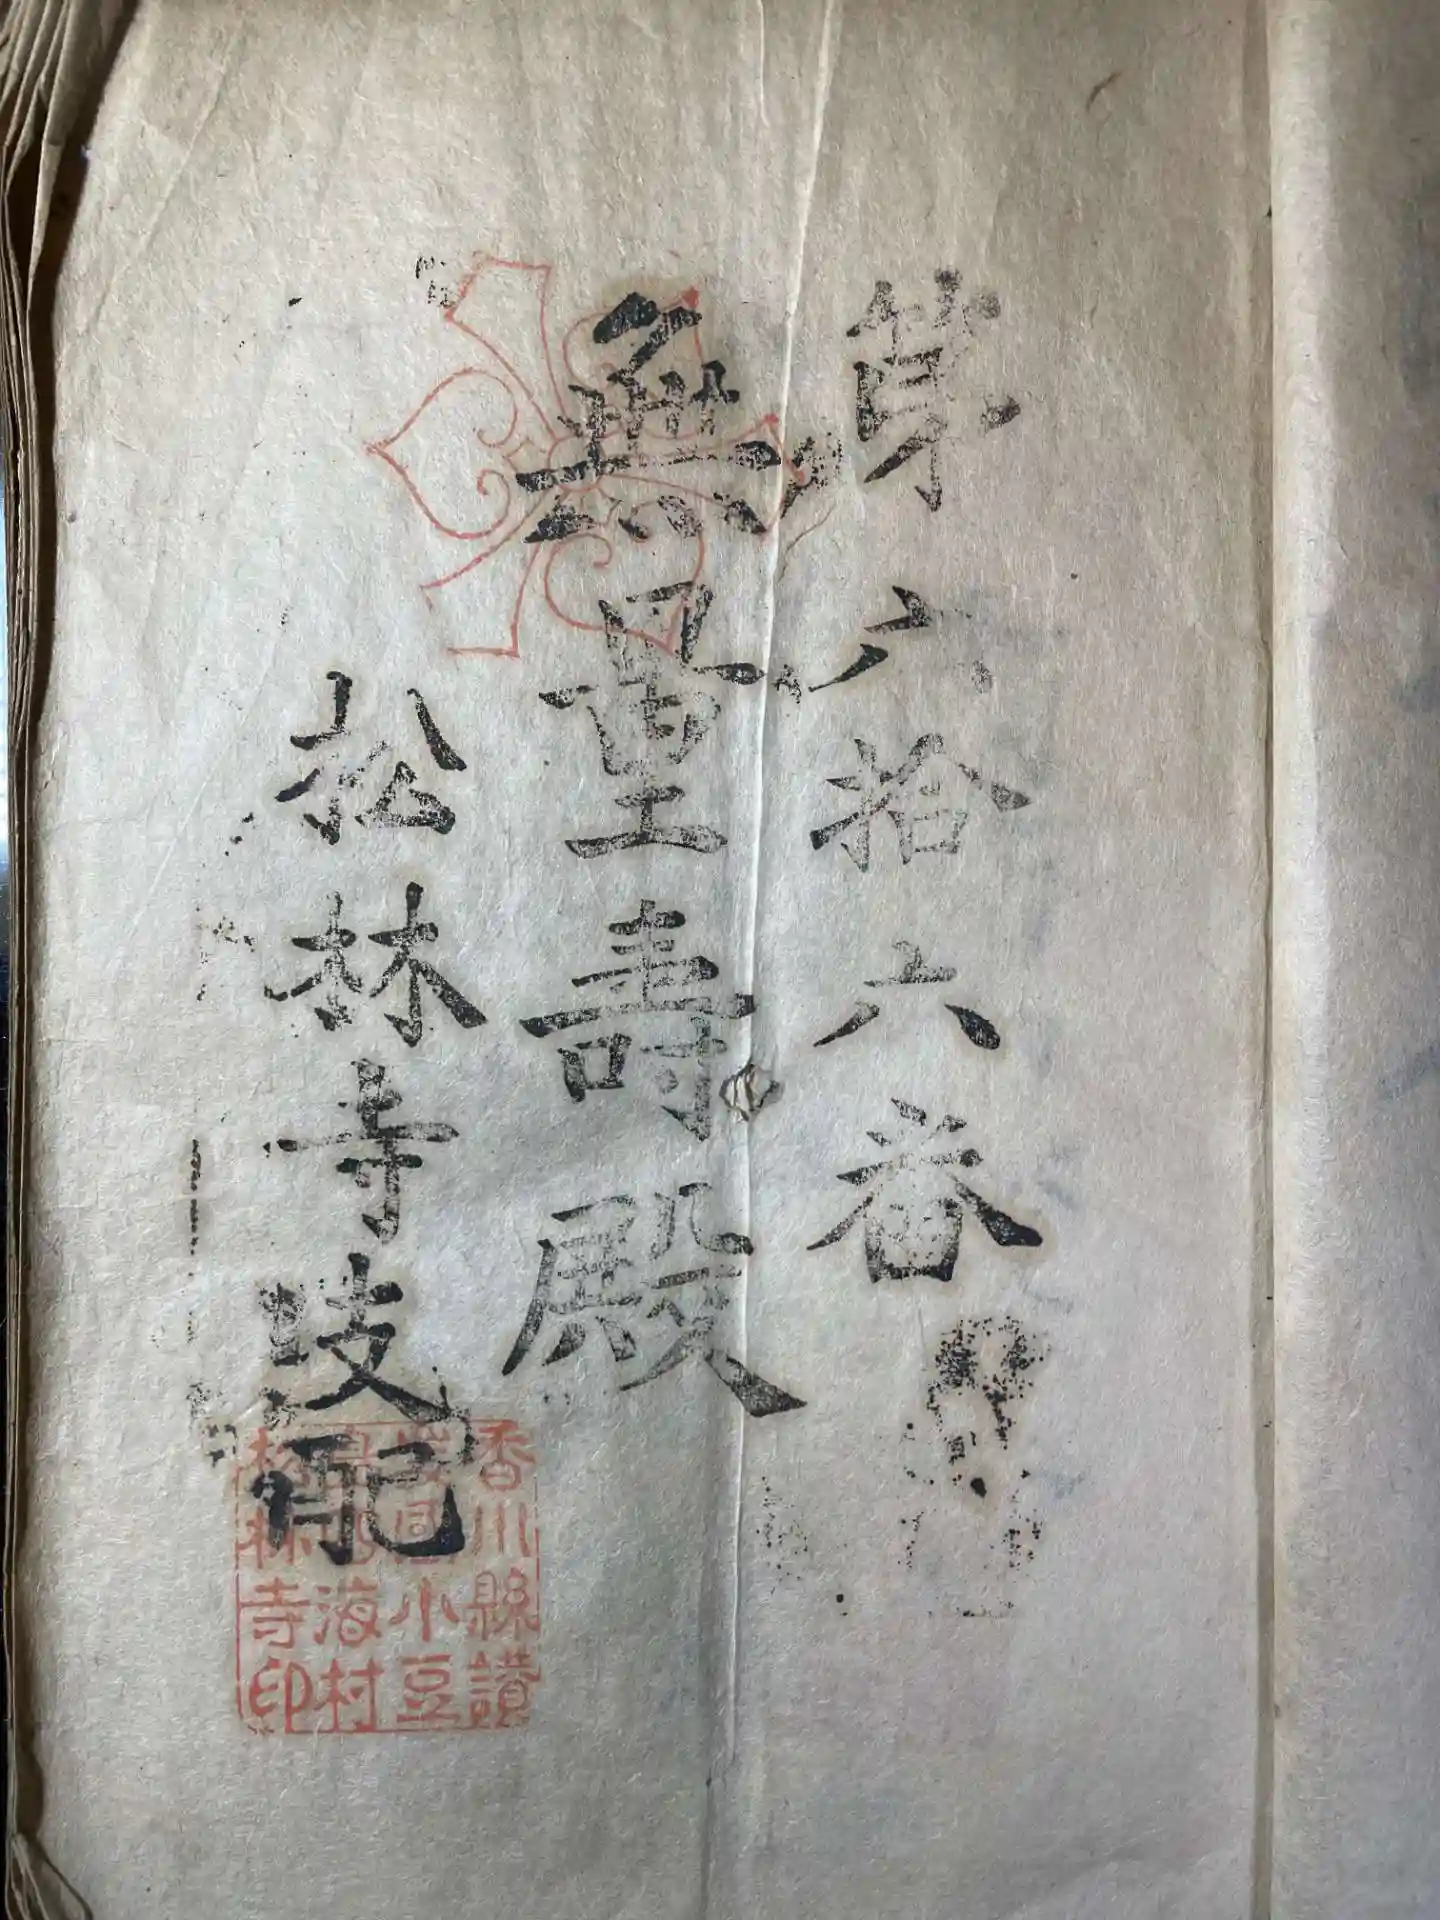 第六拾六番
無量壽殿
松林寺支配
香川縣讃
岐國小豆
島四海村
松林寺印